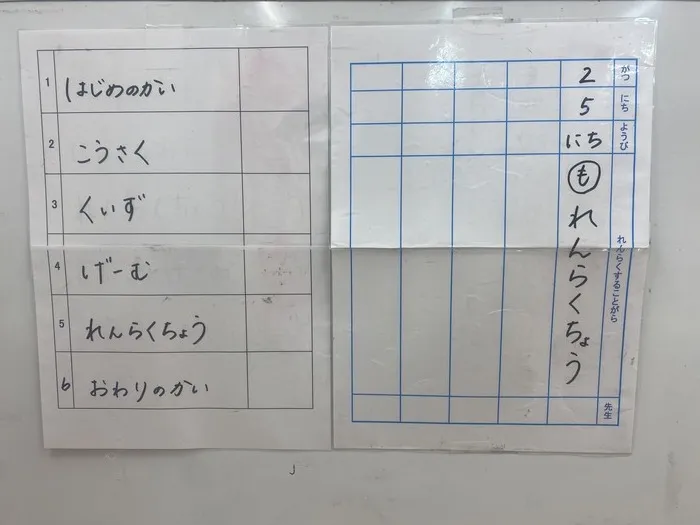 1 はじめのかい
2 こうさく
3 くいず
4 げーむ
5 れんらくちょう
6 おわりのかい
がつ にち ようび れんらくすることがら 先生
2 5 にち も れんらくちょう